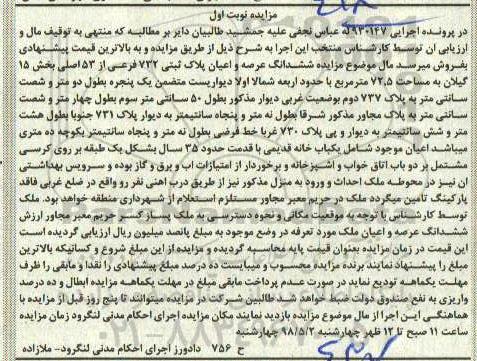 مزایده نوبت اول
در پرونده اجرایی ۹۳۰۱۴۷له عباس نجفی علیه جمشید طالبیان دایر بر مطالبه که منتهی به توقیف مال و
ارزیابی ان توسط کارشناس منتخب این اجرا به شرح ذیل از طریق مزایده و به بالاترین قیمت پیشنهادی
بفروش میرسد مال موضوع مزایده ششدانگ عرصه و اعیان پلاک ثبتی ۷۳۲ فرعی از ۵۳ اصلی بخش ۱۵
گیلان به مساحت ۷۲,۵ مترمربع با حدود اربعه شمالا اولا دیواریست متضمن یک پنجره بطول دو متر و شصت
سانتی متر به پلاک ۷۳۷ دوم بوضعیت غربی دیوار مذکور بطول ۵۰ سانتی متر سوم بطول چهار متر و شصت
سانتی متر به پلاک مجاور مذکور شرقا بطول نه متر و پنجاه سانتیمتر به دیوار پلاک ۷۳۱ جنوبا بطول هشت
متر و شش سانتیمتر به دیوار و پی پلاک ۷۳۰ غربا خط فرضی بطول نه متر و پنجاه سانتیمتر بکوچه ده متری
میباشد اعیان موجود شامل یکباب خانه قدیمی با قدمت حدود ۳۵ سال بشکل یک طبقه بر روی کرسی
مشتمل بر دو باب اتاق خواب و اشپزخانه و برخوردار از امتیازات اب و برق و گاز بوده و سرویس بهداشتی
ان نیز در محوطه ملک احداث و ورود به منزل مذکور نیز از طریق درب اهنی نفر رو واقع در ضلع غربی فاقد
پارکینگ تأمین میگردد ملک در حریم معبر مجاور مستلزم استعلام از شهرداری منطقه خواهد بود. ملک
توسط کارشناس با توجه به موقعیت مکانی و نحوه دسترسی به ملک پساز کسر حریم معبر مجاور ارزش
ششدانگ عرصه و اعیان ملک مورد تعرفه در وضع موجود به مبلغ پانصد میلیون ریال ارزیابی گردیده است
این قیمت در زمان مزایده بعنوان قیمت پایه محاسبه گردیده و مزایده از این مبلغ شروع و کسانیکه بالاترین
مبلغ را پیشنهاد نمایند برنده مزایده محسوب و میبایست ده درصد مبلغ پیشنهادی را نقدا و مابقی را ظرف
مهلت یکماهه تودیع نماید در صورت عدم پرداخت مابقی مبلغ در مهلت یکماهه مزایده ابطال و ده درصد
واریزی به نفع صندوق دولت ضبط خواهد شد طالبین شرکت در مزایده میتوانند تا پنج روز قبل از مزایده با
هماهنگی این اجرا از مال موضوع مزایده بازدید نمایند مکان مزایده اجرای احکام مدنی لنگرود زمان مزایده
ساعت ۱۱ صبح تا ۱۲ ظهر چهارشنبه ۹۸/۵/۲ چهارشنبه
ح ۷۵۶ دادورز اجرای احکام مدنی لنگرود- ملازاده